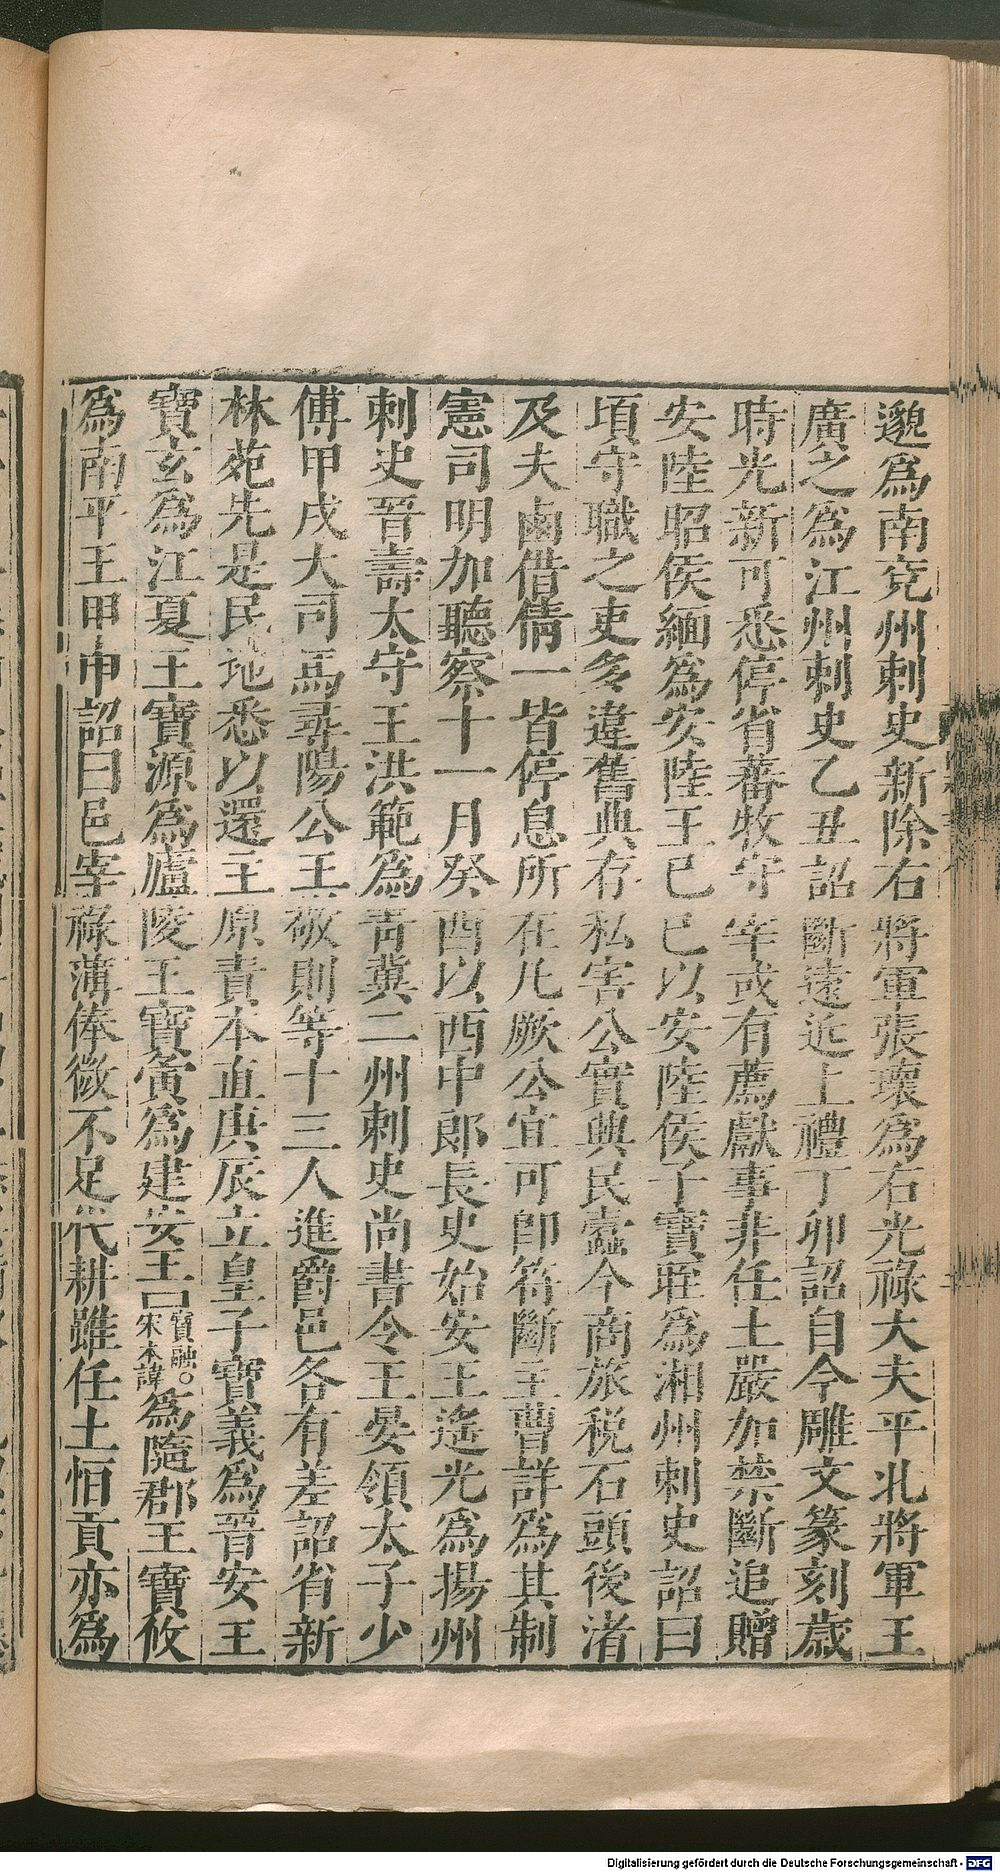 邈爲南兗州刺史新除右將軍張瓌爲右光祿大夫平北將軍王
廣之爲江州刺史乙丑詔斷遠近上禮丁卯詔自今雕文篆刻歲
時光新可悉停省蕃牧守宰或有薦獻事非任土嚴加禁斷追贈
安陸昭侯緬爲安陸王己巳以安陸侯子寶晊爲湘州刺史詔曰
頃守職之吏多違舊典存私害公實興民蠹今商旅稅石頭後渚
及夫鹵借倩一皆停息所在凡厥公宜可卽符斷主曹詳爲其制
憲司明加聽察十一月癸酉以西中郎長史始安王遙光爲揚州
刺史晉壽太守王洪範爲青冀二州刺史尚書令王晏領太子少
傅甲戌大司馬尋陽公王敬則等十三人進爵邑各有差詔省新
林苑先是民地悉以還主原責本直庚辰立皇子寶義爲晉安王
寶玄爲江夏王寶源爲廬陵王寶寅爲建安王口寶融。宋本諱爲隨郡王寶攸
爲南平王甲申詔曰邑宰祿薄俸微不足代耕雖任土恒貢亦爲
Digitalisierung gefördert durch die Deutsche Forschungsgemeinschaft - DFG